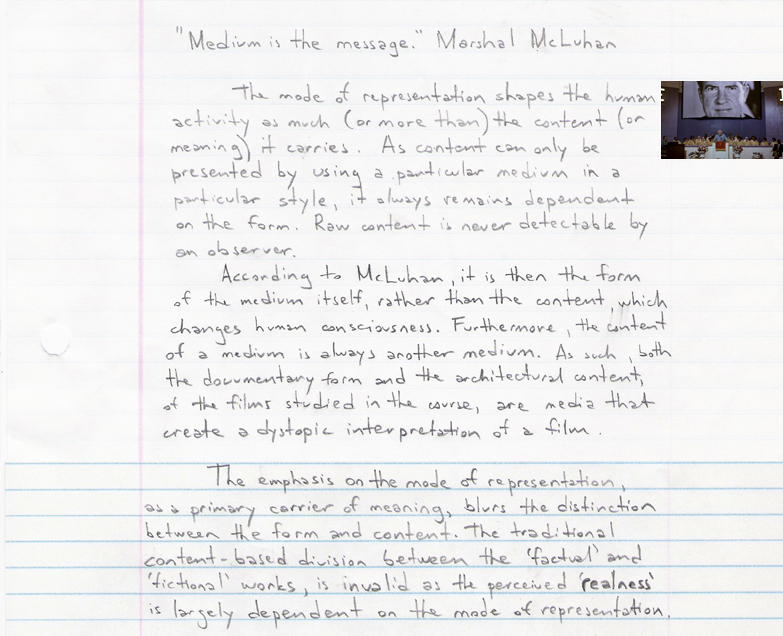 "Medium is the message." Marshal McLuhan
The mode of representation shapes the human
activity as much (or more than) the content (or
meaning) it carries. As content can only be
presented by using a particular medium in a
particular style, it always remains dependent
on the form. Raw content is never detectable by
an observer.
According to McLuhan, it is then the form
of the medium itself, rather than the content, which
changes human consciousness. Furthermore, the content
of a medium is always another medium. As such, both
the documentary form and the architectural content,
of the films studied in the course, are media that
create a dystopic interpretation of a film.
The emphasis on the mode of representation,
as a primary carrier of meaning, blurs the distinction
between the form and content. The traditional
content-based division between the 'factual' and
'fictional' works, is invalid as the perceived 'realness'
is largely dependent on the mode of representation.